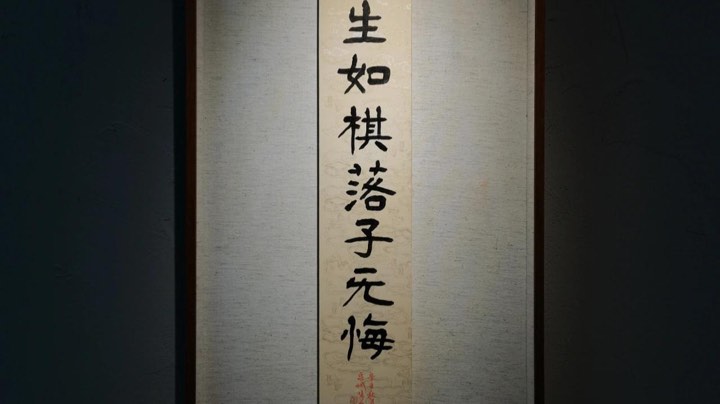 生如棋落子无悔